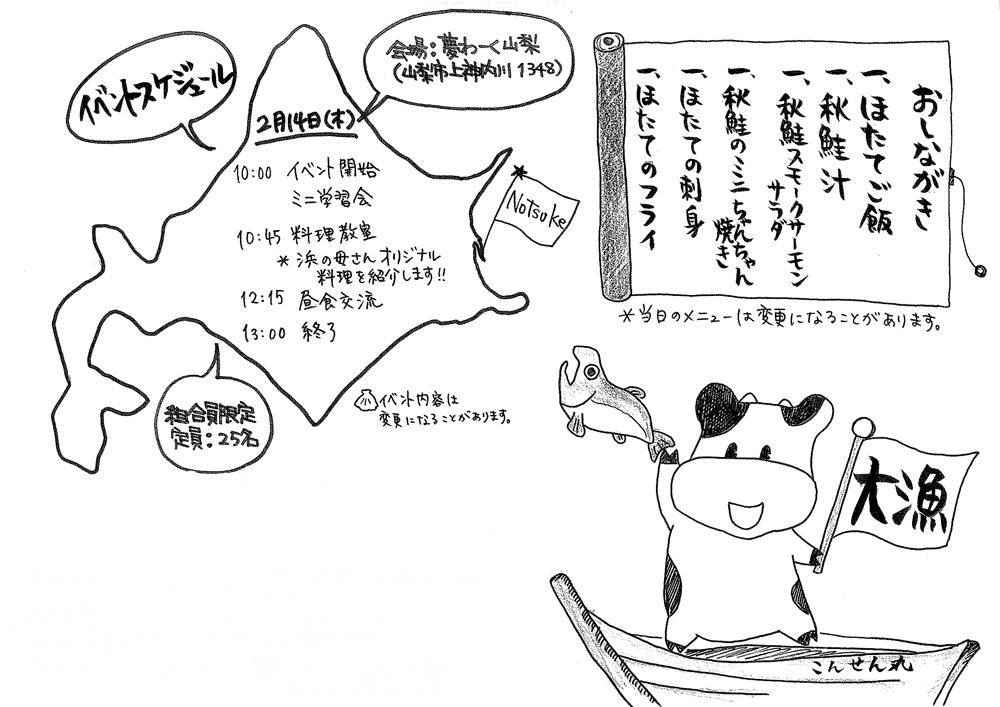 イベントスケジュール
会場：夢わーく山梨
（山梨市上神内川1348）
2月14日（木）
10:00 イベント開始
ミニ学習会
10:45 料理教室
＊浜の母さんオリジナル
料理を紹介します!!
12:15 昼食交流
13:00 終了
Notsuke
組合員限定
定員：25名
イベント内容は
変更になることがあります。
おしながき
一、ほたてご飯
一、秋鮭汁
一、秋鮭スモークサーモン
サラダ
一、秋鮭のミニちゃんちゃん
焼き
一、ほたての刺身
一、ほたてのフライ
＊当日のメニューは変更になることがあります。
大漁
こんせん丸